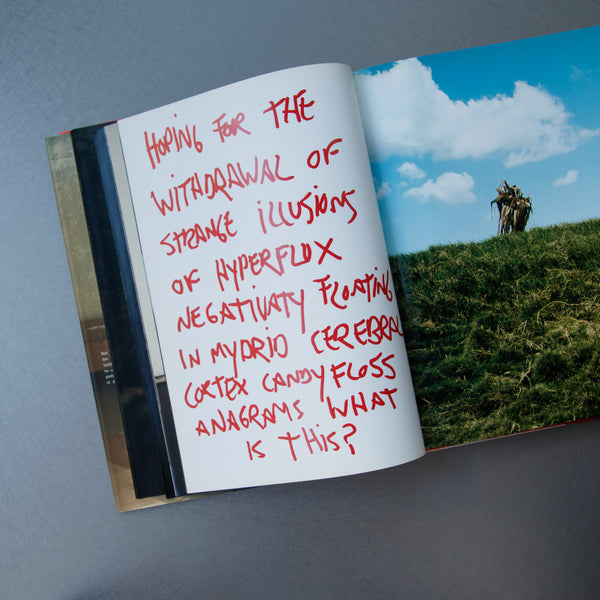 HOPING FOR THE
WITHDRAWAL OF
STRANGE ILLUSIONS
OF HYPERFLUX
NEGATIVATY FLOATING
IN MYDRID CEREBRAL
CORTEX CANDYFLOSS
ANAGRAMS WHAT
IS THIS?